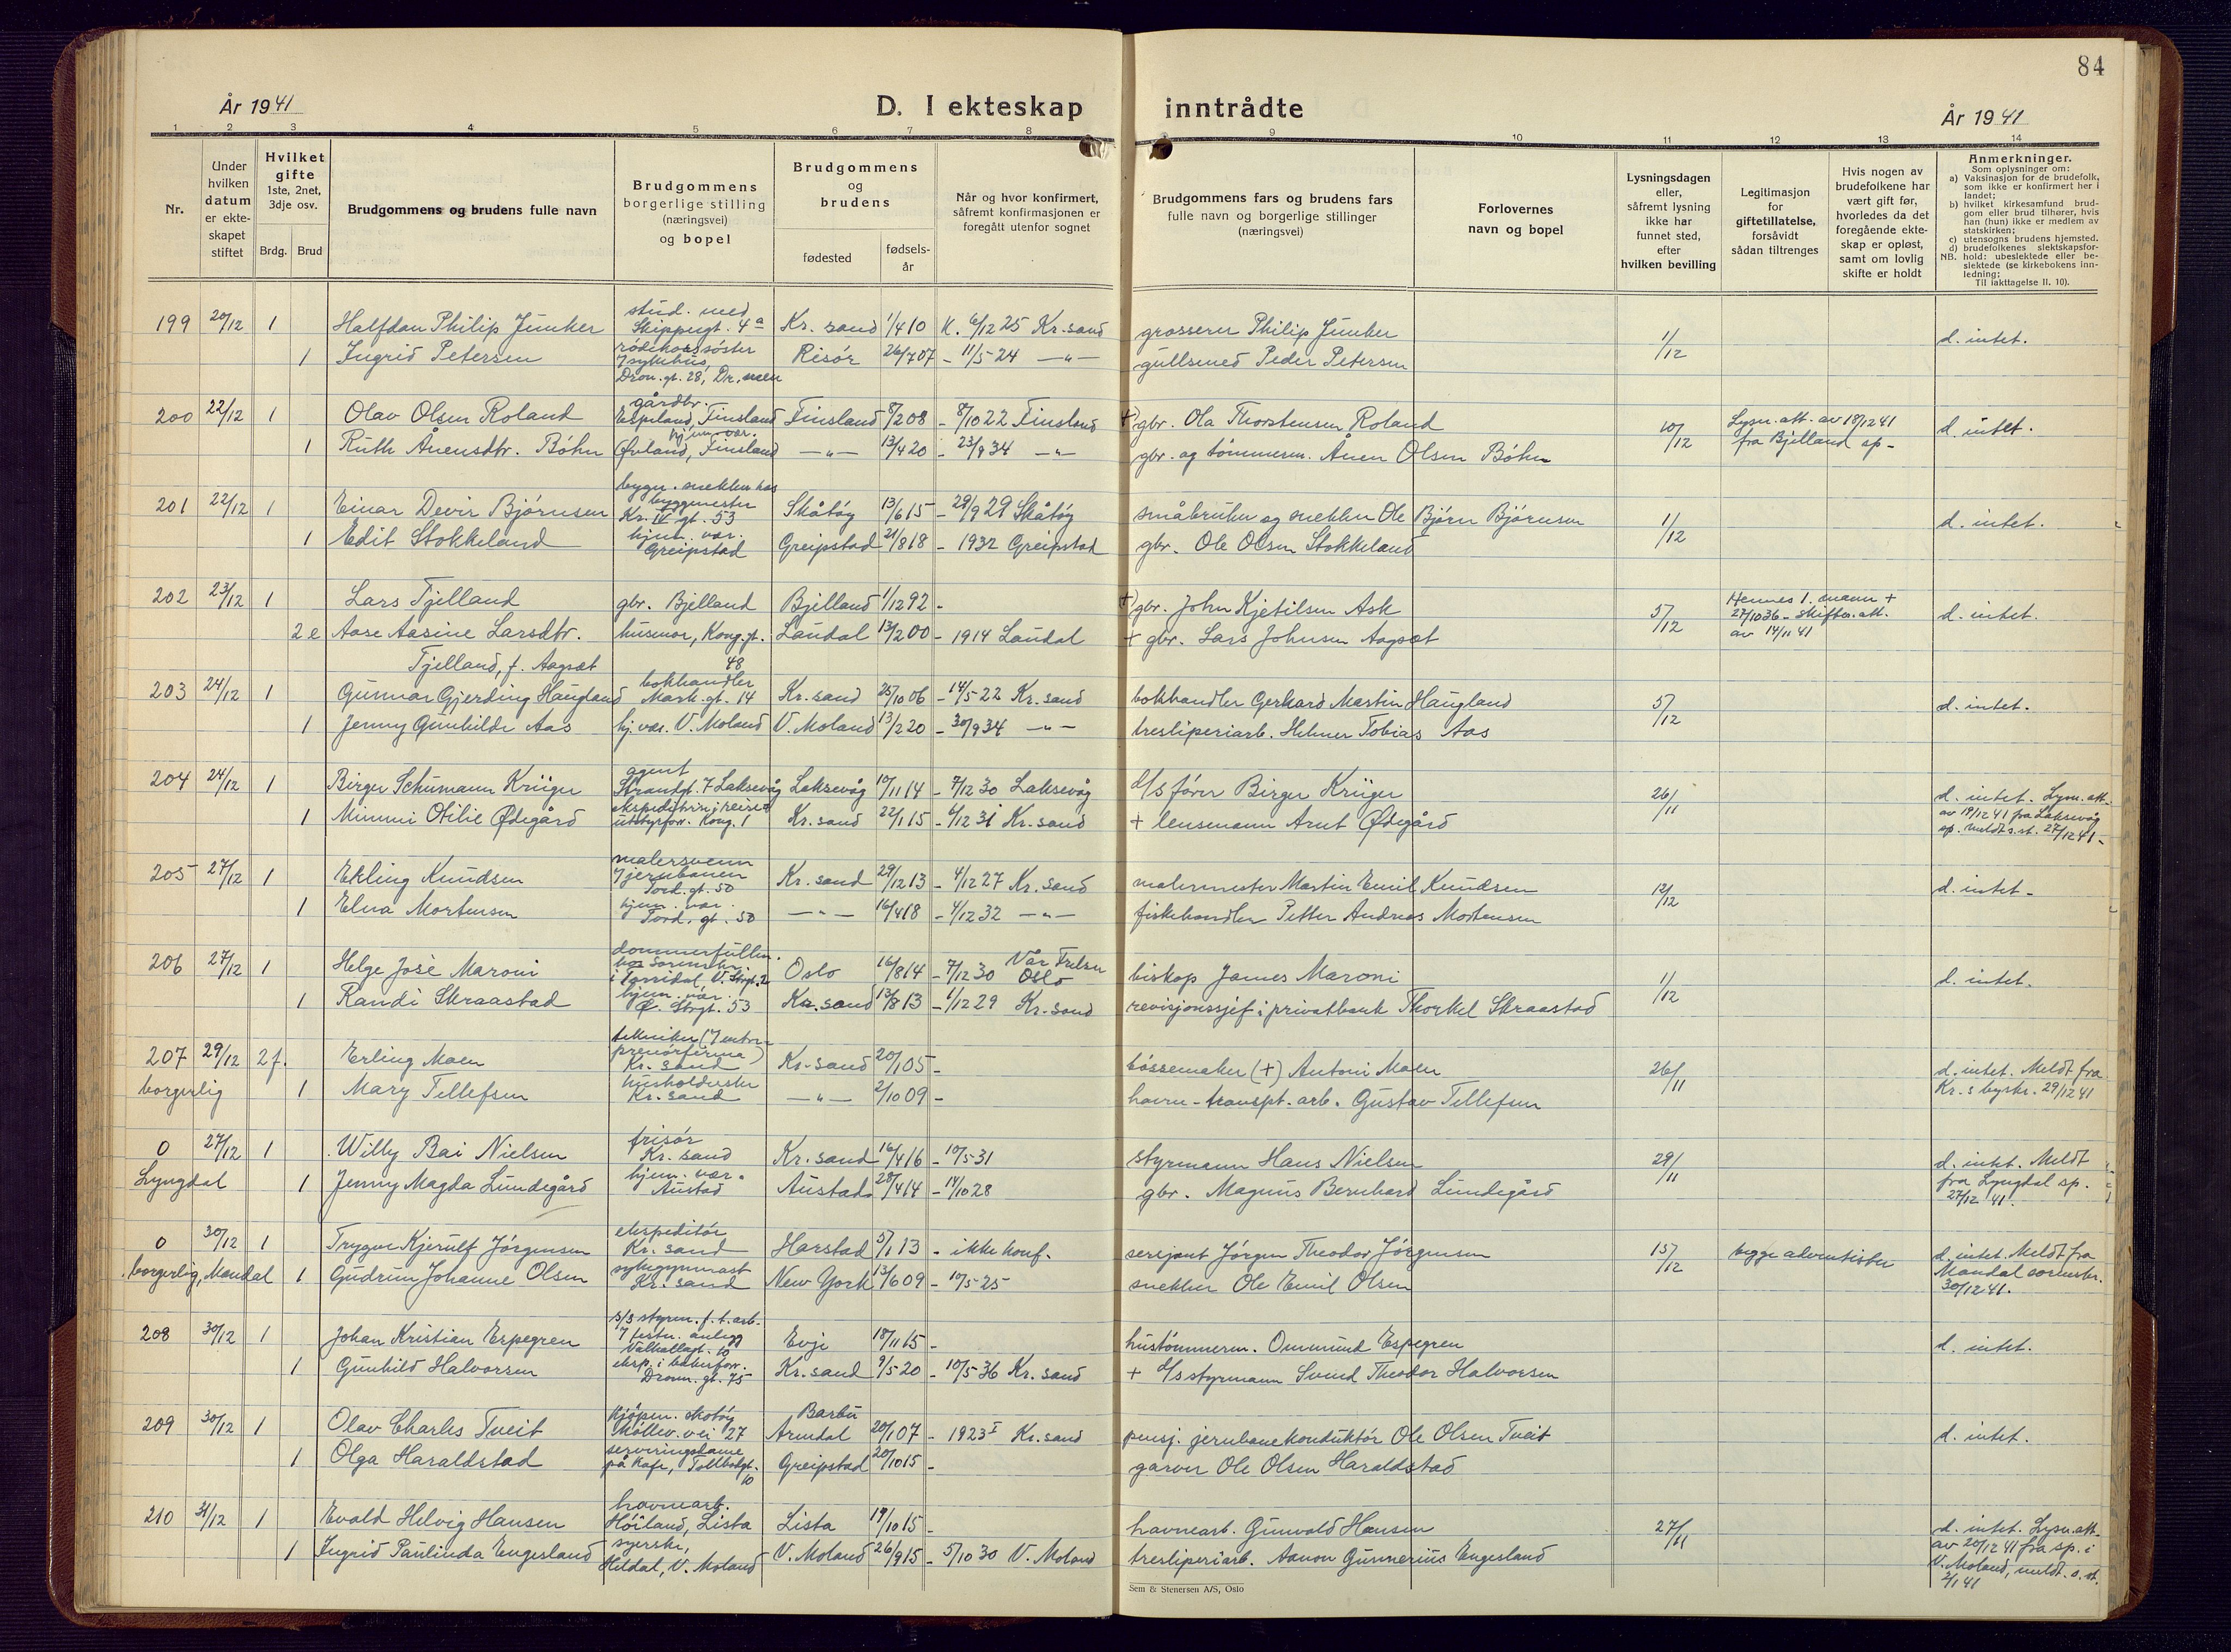 84
År 1941
D. I ekteskap inntrådte
År 1941
1 2 3 4 5 6 7 8 9 10 11 12 13 14
Nr.
Under hvilken datum er ekteskapet stiftet
Hvilket gifte 1ste, 2net, 3dje osv.
Brdg. Brud
Brudgommens og brudens fulle navn
Brudgommens borgerlige stilling (næringsvei) og bopel
Brudgommens og brudens
fødested
fødselsår
Når og hvor konfirmert, såfremt konfirmasjonen er foregått utenfor sognet
Brudgommens fars og brudens fars fulle navn og borgerlige stillinger (næringsvei)
Forlovernes navn og bopel
Lysningsdagen eller, såfremt lysning ikke har funnet sted, efter hvilken bevilling
Legitimasjon for giftetillatelse, forsåvidt sådan tiltrenges
Hvis nogen av brudefolkene har vært gift før, hvorledes da det foregående ekteskap er opløst, samt om lovlig skifte er holdt
Anmerkninger.
Som oplysninger om:
a) Vaksinasjon for de brudefolk, som ikke er konfirmert her i landet;
b) hvilket kirkesamfund brudgom eller brud tilhører, hvis han (hun) ikke er medlem av statskirken;
c) utensogns brudens hjemsted.
d) brudefolkenes slektskapsforhold: ubeslektede eller beslektede (se kirkebokens innledning;
NB.
Til iakttagelse II. 10).
199 20/12 1 Halfdan Philip Junker stud. med Skippergt. 4a Kr. sand 1/4 10 K. 6/12 25 Kr. sand grosserer Philip Junker 1/12 d. intet.
1 Ingrid Petersen rödekorssöster sykehus, Dron. gt. 28, Risör 26/7 07 - 11/5 24 -"- gullsmed Peder Petersen
200 22/12 1 Olav Olsen Roland gårdbr. Espeland, Finsland Finsland 8/2 08 - 8/10 22 Finsland +) gbr. Ola Thorstensen Roland 10/12 Lysn. att. av 18/12 41 fra Bjelland sp- d. intet.
1 Ruth Ånensdtr. Böhn hjem. vær. Øvland, Finsland -"- 13/4 20 - 23/9 34 -"- gbr. og tömmerm. Ånen Olsen Böhn
201 22/12 1 Einar Devir Björnsen bygn. snekker hos byggmester Kr. IV gt. 53 Skåtöy 13/6 15 - 29/9 29 Skåtöy småbruker og snekker Ole Björn Björnsen 1/12 d. intet.
1 Edit Stokkeland hjem. vær. Greipstad Greipstad 21/8 18 - 1932 Greipstad gbr. Ole Olsen Stokkeland
202 23/12 1 Lars Tjelland gbr. Bjelland Bjelland 1/12 92 - +) gbr. John Kjetilsen Ask 5/12 Hennes 1. mann + 27/10 36 - skiftea. att. av 14/11 41 d. intet.
2 e Aase Aasine Larsdtr. husmor, Kong. gt. 48 Laudal 13/2 00 - 1914 Laudal + gbr. Lars Johnsen Aagsæt
Tjelland, f. Aagsæt
203 24/12 1 Gunnar Gjerding Haugland bokhandler Mark. gt. 14 Kr. sand 25/10 06 - 14/5 22 Kr. sand bokhandler Gerhard Martin Haugland 5/12 d. intet.
1 Jenny Gunhilde Aas hj. vær. V. Moland V. Moland 13/2 20 - 30/9 34 -"- tresliperiarb. Helmer Tobias Aas
204 24/12 1 Birger Schumann Krüger agent Strandgt. 7 Laksevåg Laksevåg 10/11 14 - 7/12 30 Laksevåg d/s förer Birger Krüger 26/11 d. intet. Lysn. att. av 19/12 41 fra Laksevåg sp. meldt s. st. 27/12 41 -
1 Mimmi Otilie Ødegård Kong. 1 Kr. sand 22/1 15 - 6/12 31 Kr. sand + lensmann Arnt Ødegård
205 27/12 1 Erling Knudsen malersvenn Jernbanen Tord. gt. 50 Kr. sand 29/12 13 - 4/12 27 Kr. sand malermester Martin Emil Knudsen 12/12 d. intet -
1 Elna Mortensen hjem. vær. Tord. gt. 50 -"- 16/4 18 - 4/12 32 -"- fiskehandler Petter Andreas Mortensen
206 27/12 1 Helge José Maroni dommerfullm. hos Sorenskr. i Torridal V. Strgt. 2 Oslo 16/8 14 - 7/12 30 Vår Frelser Oslo biskop James Maroni 1/12 d. intet.
1 Randi Skraastad hjem. vær. Ø. Strgt. 53 Kr. sand 13/8 13 - 1/12 29 Kr. sand revisjonssjef i privatbank Thorkel Skraastad
207 29/12 2 f. Erling Moen tekniker (I entreprenörfirma) Kr. sand Kr. sand 20/1 05 - bössemaker (+) Antoni Moen 26/11 d. intet. Meldt fra Kr. s byskr. 29/12 41
borgerlig 1 Mary Tellefsen husholderske Kr. sand -"- 2/10 09 - havne-transpt. arb. Gustav Tellefsen
0 27/12 1 Willy Bai Nielsen frisör Kr. sand Kr. sand 16/4 16 - 10/5 31 styrmann Hans Nielsen 29/11 d. intet. Meldt fra Lyngdal sp. 27/12 41.
Lyngdal 1 Jenny Magda Lundegård hjem. vær. Austad Austad 28/4 14 - 14/10 28 gbr. Magnus Bernhard Lundegård
0 30/12 1 Trygve Kjerulf Jörgensen ekspeditör Kr. sand Harstad 5/1 13 - ikke konf. sersjant Jörgen Theodor Jörgensen 15/12 begge adventister d. intet. Meldt fra Mandal sorenskr. 30/12 41.
borgerlig, Mandal 1 Gudrun Johanne Olsen sykegymnast Kr. sand New York 13/6 09 - 10/5 25 snekker Ole Emil Olsen
208 30/12 1 Johan Kristian Espegren s/s styrm. f. t. arb. festn. anlegg Valhallagt. 10 Evje 18/11 15 - hustömmerm. Ommund Espegren d. intet.
1 Gunhild Halvorsen eksp. i bakerforr. Dronn. gt. 75 Kr. sand 9/5 20 - 10/5 36 Kr. sand + d/s styrmann Svend Theodor Halvorsen
209 30/12 1 Olav Charles Tveit kjöpm. skotöy Möllev. vei 27 Barbu Arendal 20/1 07 - 1923 I Kr. sand pensj. jernbanekonduktör Ole Olsen Tveit d. intet.
1 Olga Haraldstad serveringsdame på kafe, Tollbodgt. 10 Greipstad 20/10 15 - garver Ole Olsen Haraldstad
210 31/12 1 Evald Helvig Hansen havnearb. Höiland, Lista Lista 19/10 15 - havnearb. Gunvald Hansen 27/11 d. intet. Lysn. att. av 20/12 41 fra sp. i V. Moland, meldt. s. st. 2/1 41
1 Ingrid Paulinda Engesland syerske, Heldal, V. Moland V. Moland 26/9 15 - 5/10 30 V. Moland tresliperiarb. Aanon Gunnerius Engesland
Sem & Stenersen A/S, Oslo